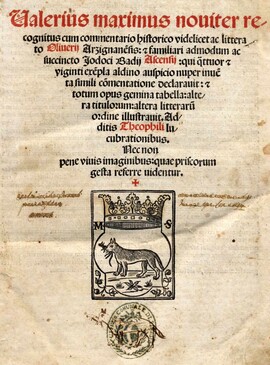 Ualerius maximus nouiter re
cognitus cum commentario historico videlicet ac littera
to Oliuerij Arzignanẽsis: & familiari admodum ac
succincto Jodoci Badij Ascensij: qui q̃ttuor &
viginti exẽpla aldino auspicio nuper inuẽ
ta simili cõmentatione declarauit: &
totum opus gemina tabella: alte-
ra titulorum: altera litterarũ
ordine illustrauit. Ad-
ditis Theophili lu-
cubrationibus.
Nec non
pene viuis imaginibus: quæ priscorum
gesta referre uidentur.
M S